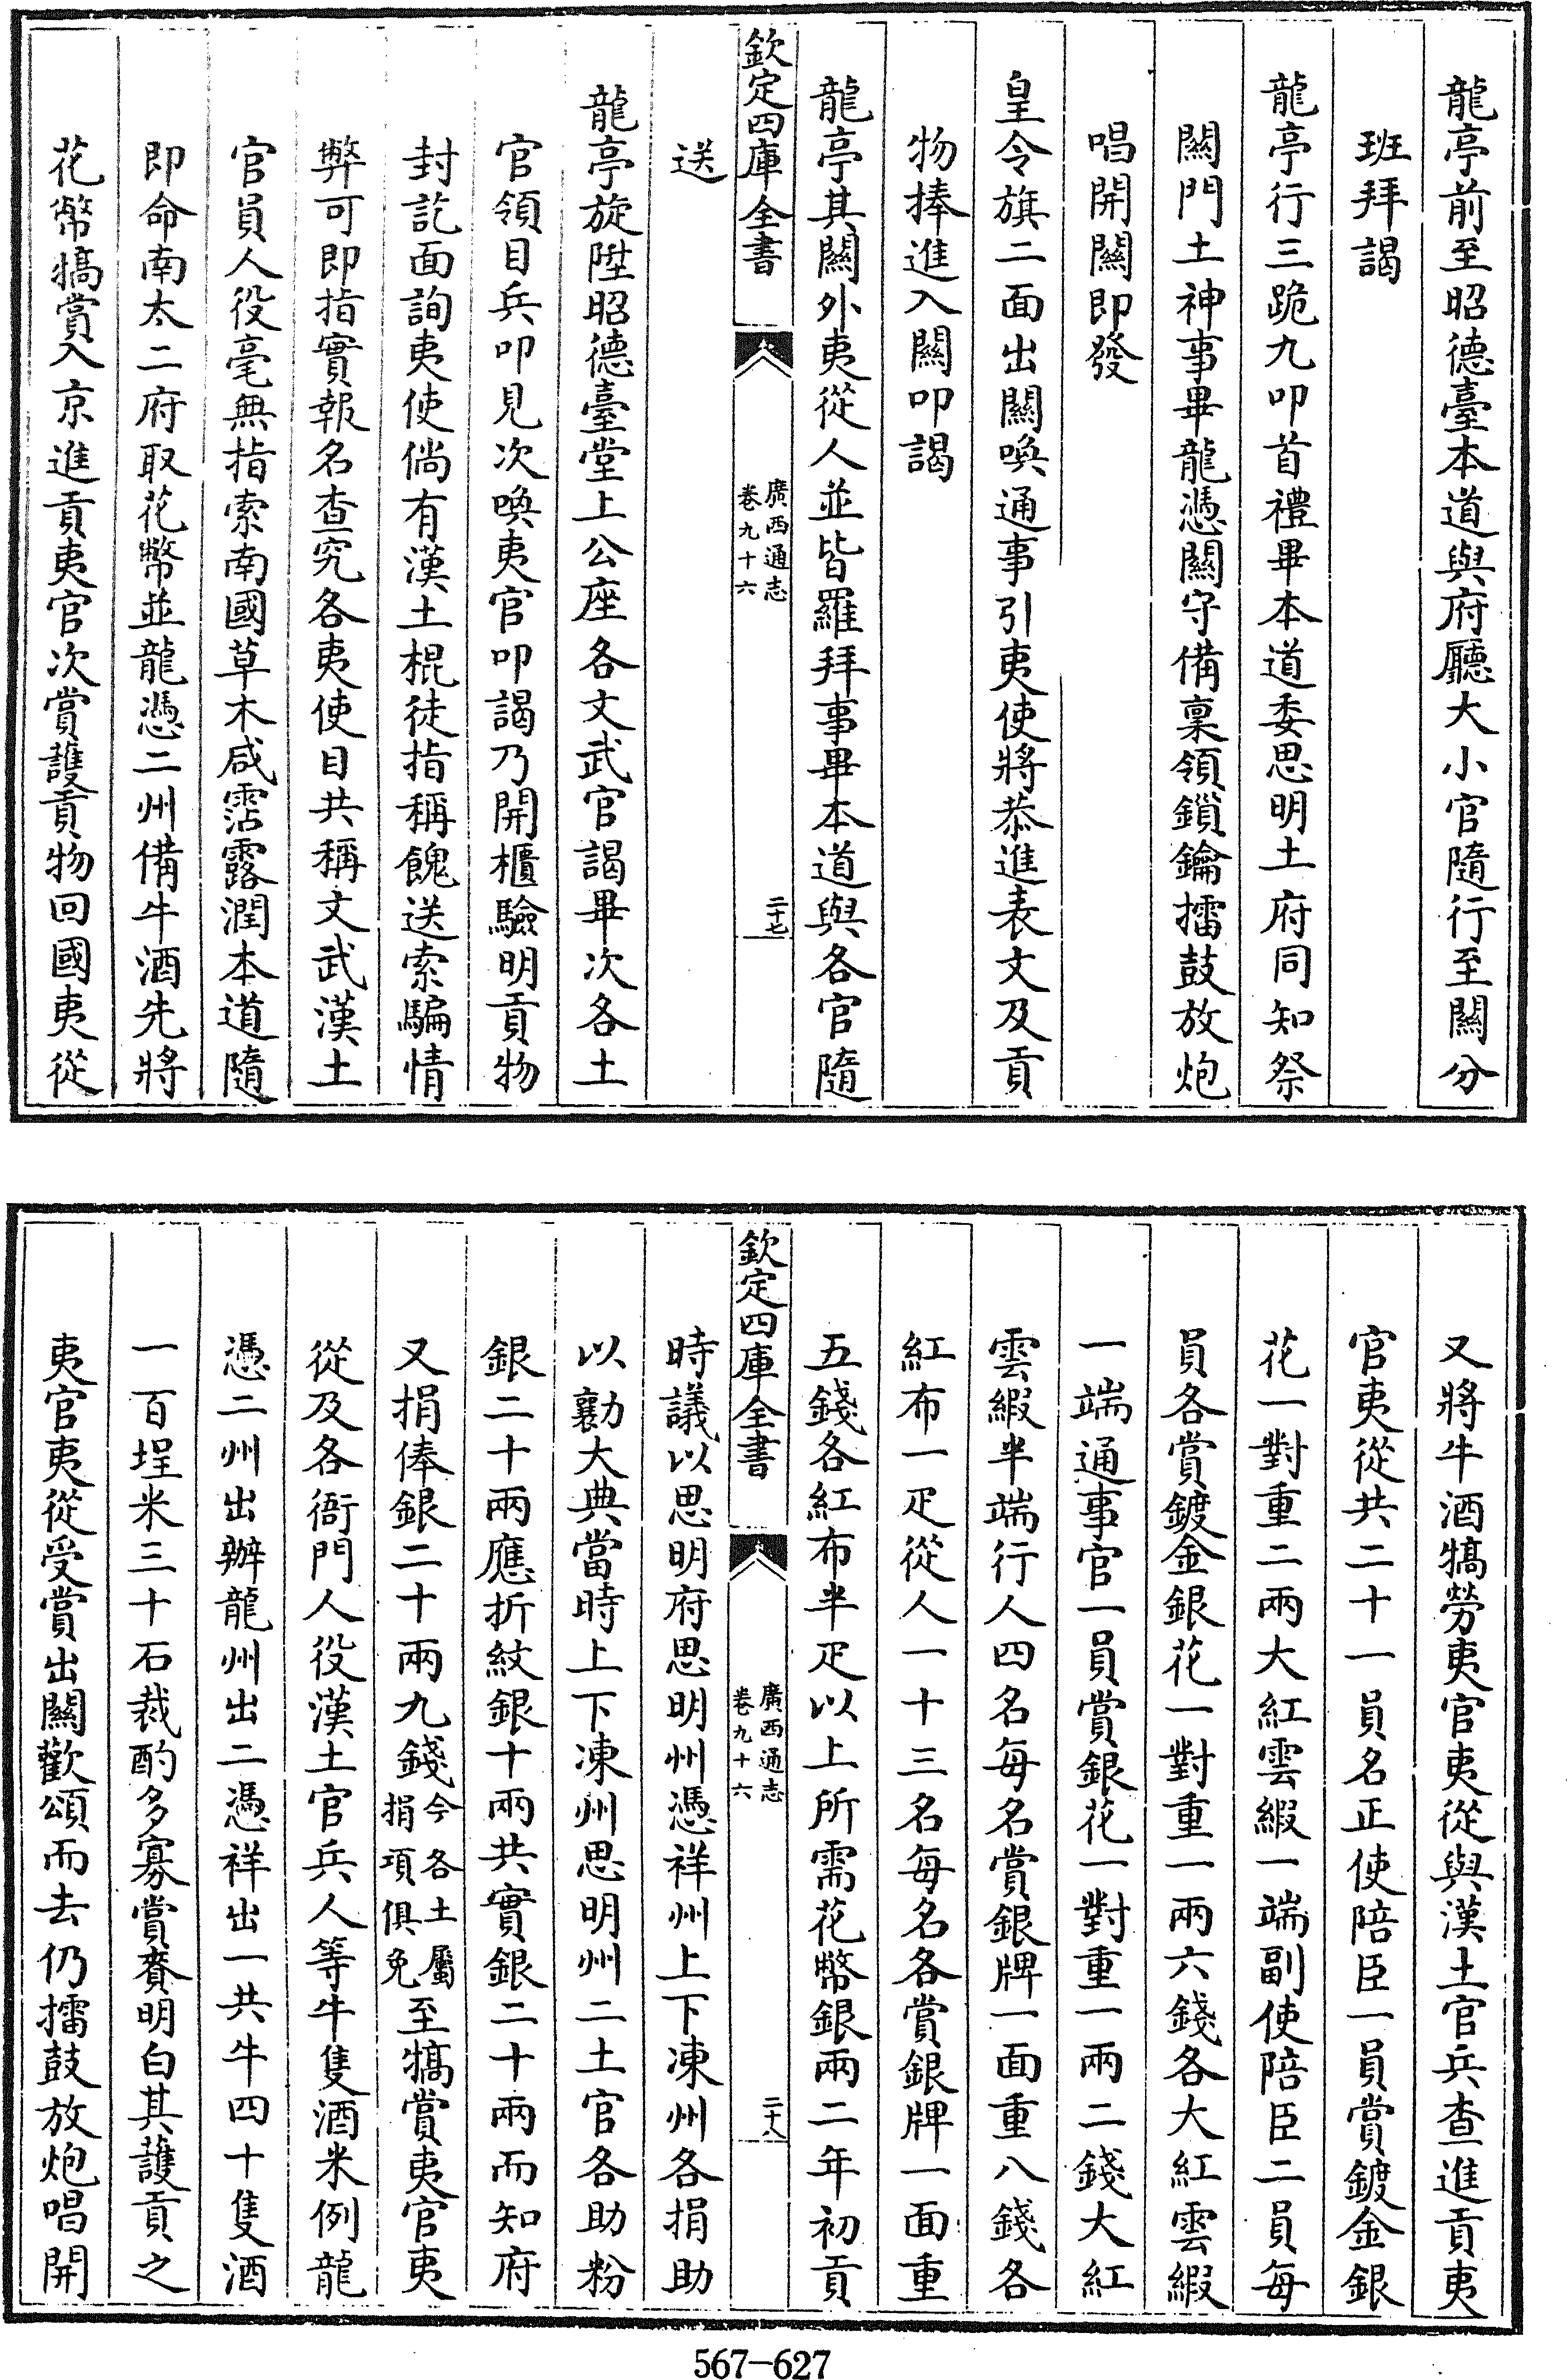 龍亭前至昭德臺本道與府廳大小官隨行至關分
班拜謁
龍亭行三跪九叩首禮畢本道委思明土府同知祭
關門土神事畢龍憑關守備稟領鎖鑰擂鼓放炮
唱開關即發
皇令旗二面出關喚通事引夷使將恭進表文及貢
物捧進入關叩謁
龍亭其關外夷從人並皆羅拜事畢本道與各官隨
欽定四庫全書
廣西通志
卷九十六
二十七
送
龍亭旋陞昭德臺堂上公座各文武官謁畢次各土
官領目兵叩見次喚夷官叩謁乃開櫃驗明貢物
封訖面詢夷使倘有漢土棍徒指稱餽送索騙情
弊可即指實報名查究各夷使目共稱文武漢土
官員人役毫無指索南國草木咸霑露潤本道隨
即命南太二府取花幣並龍憑二州備牛酒先將
花幣犒賞入京進貢夷官次賞護貢物回國夷從
又將牛酒犒勞夷官夷從與漢土官兵查進貢夷
官夷從共二十一員名正使陪臣一員賞鍍金銀
花一對重二兩大紅雲緞一端副使陪臣二員每
員各賞鍍金銀花一對重一兩六錢各大紅雲緞
一端通事官一員賞銀花一對重一兩二錢大紅
雲緞半端行人四名每名賞銀牌一面重八錢各
紅布一疋從人一十三名每名各賞銀牌一面重
五錢各紅布半疋以上所需花幣銀兩二年初貢
欽定四庫全書
廣西通志
卷九十六
二十八
時議以思明府思明州憑祥州上下凍州各捐助
以勷大典當時上下凍州思明州二土官各助粉
銀二十兩應折紋銀十兩共實銀二十兩而知府
又捐俸銀二十兩九錢今各土屬捐項俱免至犒賞夷官夷
從及各衙門人役漢土官兵人等牛隻酒米例龍
憑二州出辦龍州出二憑祥出一共牛四十隻酒
一百埕米三十石裁酌多寡賞賚明白其護貢之
夷官夷從受賞出關歡頌而去仍擂鼓放炮唱開
567-627